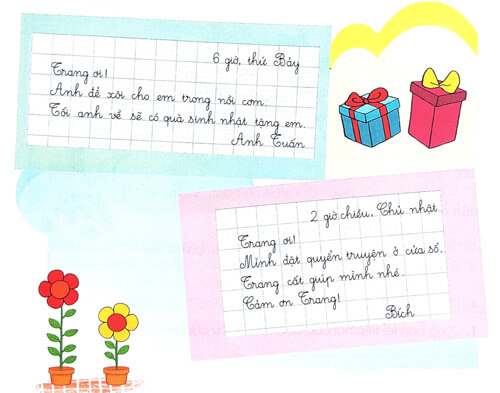 6 giờ, thứ Bảy
Trang ơi!
Anh để xôi cho em trong nồi cơm.
Tối anh về sẽ có quà sinh nhật tặng em.
Anh Tuấn
2 giờ chiều, Chủ nhật
Trang ơi!
Mình đặt quyển truyện ở cửa sổ.
Trang cất giúp mình nhé.
Cảm ơn Trang!
Bích